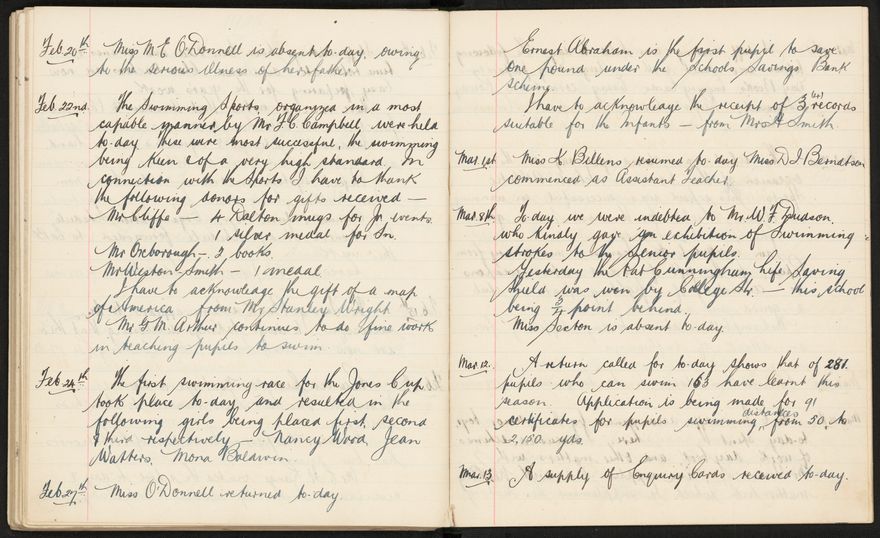 Feb. 20th. Miss M E O'Donnell is absent to-day, owing
to the serious illness of her father.
Feb. 22nd. The Swimming Sports, organized in a most
capable manner by Mr J. C. Campbell, were held
to-day. These were most successful, the swimming
being keen & of a very high standard. In
connection with the Sports I have to thank
the following donors for gifts received —
Mr Cliffe — 4 Dalton mugs for Jr events.
1 silver medal for Sn.
Mr Oxborough — 2 books.
Mr Weston Smith — 1 medal
I have to acknowledge the gift of a map
of America from Mr Stanley Wright.
Mr G. M. Arthur continues to do fine work
in teaching pupils to swim.
Feb 24th. The first swimming race for the Jones Cup
took place to-day and resulted in the
following girls being placed first, second
& third respectively — Nancy Word, Jean
Watters, Mona Baldwin.
Feb. 27th. Miss O'Donnell returned to-day
Ernest Abraham is the first pupil to save
one pound under the Schools Savings Bank
scheme.
I have to acknowledge the receipt of 3 records
suitable for the Infants — from Mrs A Smith
Mar. 1st. Miss K Billens resumed to-day Miss D I Berndtson
commenced as Assistant Teacher.
Mar. 9th. To-day we were indebted to Mr. W. F. Dudson,
who kindly gave an exhibition of Swimming
strokes to the senior pupils.
Yesterday the Cunningham Life Saving
Shield was won by College St. — this school
being point behind.
Miss Secton is absent to-day.
Mar. 12. A return called for to-day shows that of 281
pupils who can swim 163 have learnt this
season. Application is being made for 91
certificates for pupils swimming distances from 50 to
2,150 yds.
Mar. 13. A supply of Enquiry Cards received to-day.